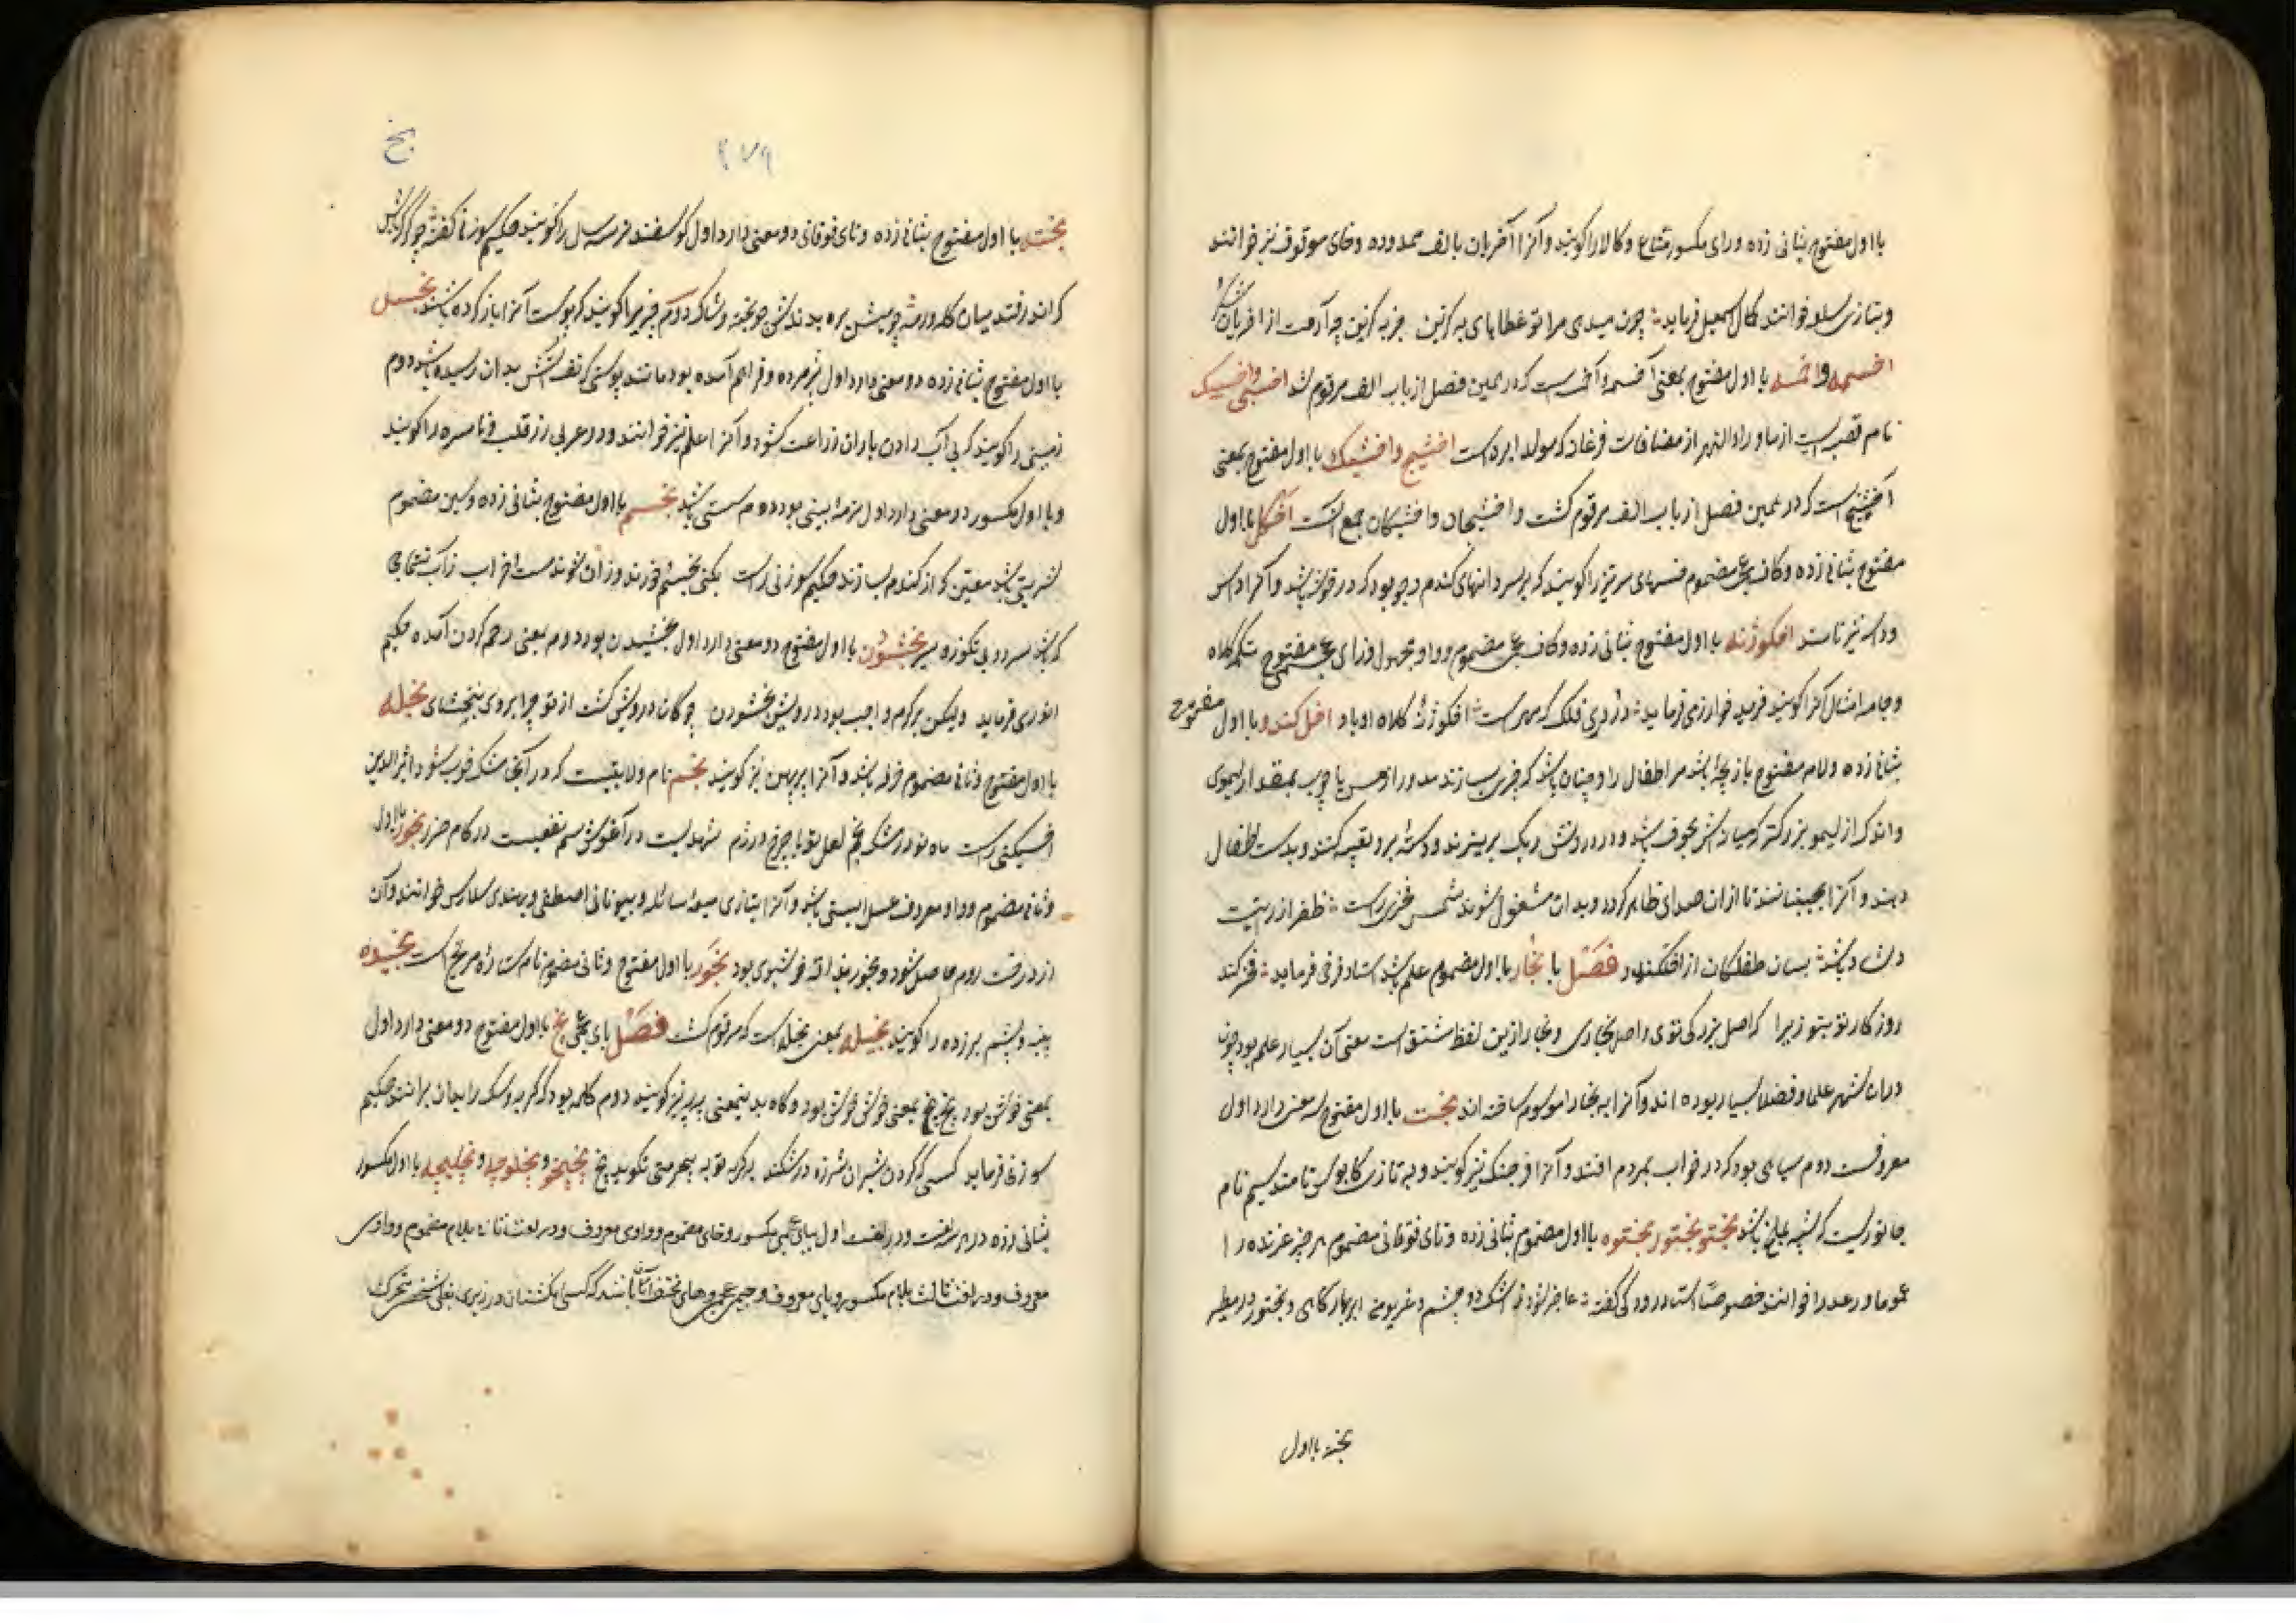 با اول مفتوح بثانی زده و رای مکسور متاع و کالا را کویند و آنرا آخریان با الف ممدوده و خای موقوف نیز خوانند
و بتازی سلعه خوانند کمال اسمعیل فرماید چون میدی مرا تو عطاهای به کزین جز به کزین چه آرمت از اخریان
اخسمه و اخمسه با اول مفتوح بمعنی آخسمه و آن است که در همین فصل از باب الف مرقوم شد اخسی و اخسیک
نام قصبه ایست از ماوراء النهر از مضافات فرغانه که مولد اثیر است اخشیج و اخشیک با اول مفتوح بمعنی
آخشیج است که در همین فصل از باب الف مرقوم کشت و اخشیجان و اخشیکان جمع آنست اخکل با اول
مفتوح بثانی زده و کاف عجمی مضموم خسهای سر تیز را کویند که بر سر دانهای کندم و جو بود که در خوشه باشد و آنرا داس
و داسه نیز نامند اخکوژنه با اول مفتوح بثانی زده و کاف عجمی مضموم و واو مجهول و زای عجمی مفتوح تکمه کلاه
و جامه و امثال آنرا کویند فرید خوارزمی فرماید در ژدی فلک که مهر است اخکوژنه کلاه او باد اخل کندو با اول مفتوح
بثانی زده و لام مفتوح بازیچه باشد مر اطفال را و چنان باشد که چیزی سازند مدور از مس یا چوب بمقدار لیموی
و اندک از لیمو بزرکتر که میانش مجوف باشد و در درونش ریک بریزند و دسته برو تعبیه کنند و بدست اطفال
دهند و آنرا بجنبانند تا از ان صدای ظاهر کردد و بدان مشغول شوند شمس فخری راست ظفر از ریت
دلشاد باشد بسان طفلکان از اخلکندو فصل با بخار با اول مضموم علم باشد استاد فرخی فرماید فخر کند
روز کار تو بتو زیرا که اصل بزرکی توی و اصل بخاری و بخارا ازین لفظ مشتق است معنی آن بسیار علم بود چون
دران شهر علما و فضلا بسیار بوده اند و آنرا به بخارا موسوم ساخته اند بخت با اول مفتوح سه معنی دارد اول
معروفست دوم سیاهی بود که در خواب بمردم افتد و آنرا فرنجک نیز کویند و به تازی کابوس نامند سیم نام
جانوریست که شبیه بملخ باشد بختو بختور بختوه با اول مضموم بثانی زده و تای فوقانی مضموم هر چیز غرنده را
عموما و رعد را خوانند خصوصا استاد رودکی کفته عاجز شود ز اشک دو چشم و غریو من ابر بهار کاهی و بختور در مطیر
بخته با اول
بخ
۲۷۹
بخته با اول مفتوح بثانی زده و تای فوقانی دو معنی دارد اول کوسفند نر سه سال را کویند حکیم سوزنی کفته چو کرک باش
که اندر فتد میان کله و رمه چو میش بره بدندانش چو بخته و شاک دوم چیزی را کویند که پوست آنرا باز کرده باشند بخسل
با اول مفتوح بثانی زده دو معنی دارد اول پژمرده و فراهم آمده بود مانند پوستی که تف آتش بدان رسیده باشد دوم
زمینی را کویند که بی آب دادن باران زراعت کشود و آنرا علم نیز خوانند و در عربی زر قلب و ناسره را کویند
و با اول مکسور دو معنی دارد اول نرمه بینی بود دوم سستی باشد بخسم با اول مفتوح بثانی زده و سین مضموم
شربتی باشد معین که از کندم سازند حکیم سوزنی راست بکنی بخسم خورند و ز ان شوند مست خراب ز آب
که باشد سرد و بی نکوزه سیر بخشودن با اول مفتوح دو معنی دارد اول بخشیدن بود دوم بمعنی رحم کردن آمده حکیم
انوری فرماید ولیکن بر کرم واجب بود درویش بخشودن چو کان درویش کشت از تو چرا بر وی نبخشای بخله
با اول مفتوح و ثانی مضموم خرفه باشد و آنرا پرپهن نیز کویند بخم نام ولایتیست که در آنجا مشک خوب شود اثیر الدین
اخسیکتی راست ماه نو در مشک بخم لعل تو با چرخ در رزم شهدیست در آغوش سم نفعیست در کام ضرر بخور با اول
و ثانی مضموم و واو معروف عسل البنی باشد و آنرا بتازی میعه سائله و بیونانی اصطفی و بهندی سلارس خوانند و آن
از درخت روم حاصل شود و بخور بغایت خوشبوی بود بخور با اول مفتوح و ثانی مضموم نام ستاره مریخ است بخیده
پنبه و پشم برزده را کویند بخیله بمعنی بخله است که مرقوم کشت فصل بای عجمی پخ با اول مفتوح دو معنی دارد اول
بمعنی خوش بود پخ پخ بمعنی خوش خوش بود و کاه بدینمعنی به به نیز کویند دوم کلمه بود که کربه و سک را بدان برانند حکیم
سوزنی فرماید کسی که کردن شیران شرزه در شکند به کربه تو به بیحرمتی نکوید پخ پخپخو و پخلوچه و پخلیچه با اول مکسور
بثانی زده در هر سه لغت و در لغت اول ببای عجمی مکسور و خای مضموم و واوی معروف و در لغت ثانی بلام مضموم و واوی
معروف و در لغت ثالث بلام مکسور و یای معروف و جیم عجمی و های مختفی آن باشد که کسی انکشتان در زیر بغل شخصی بتحریک